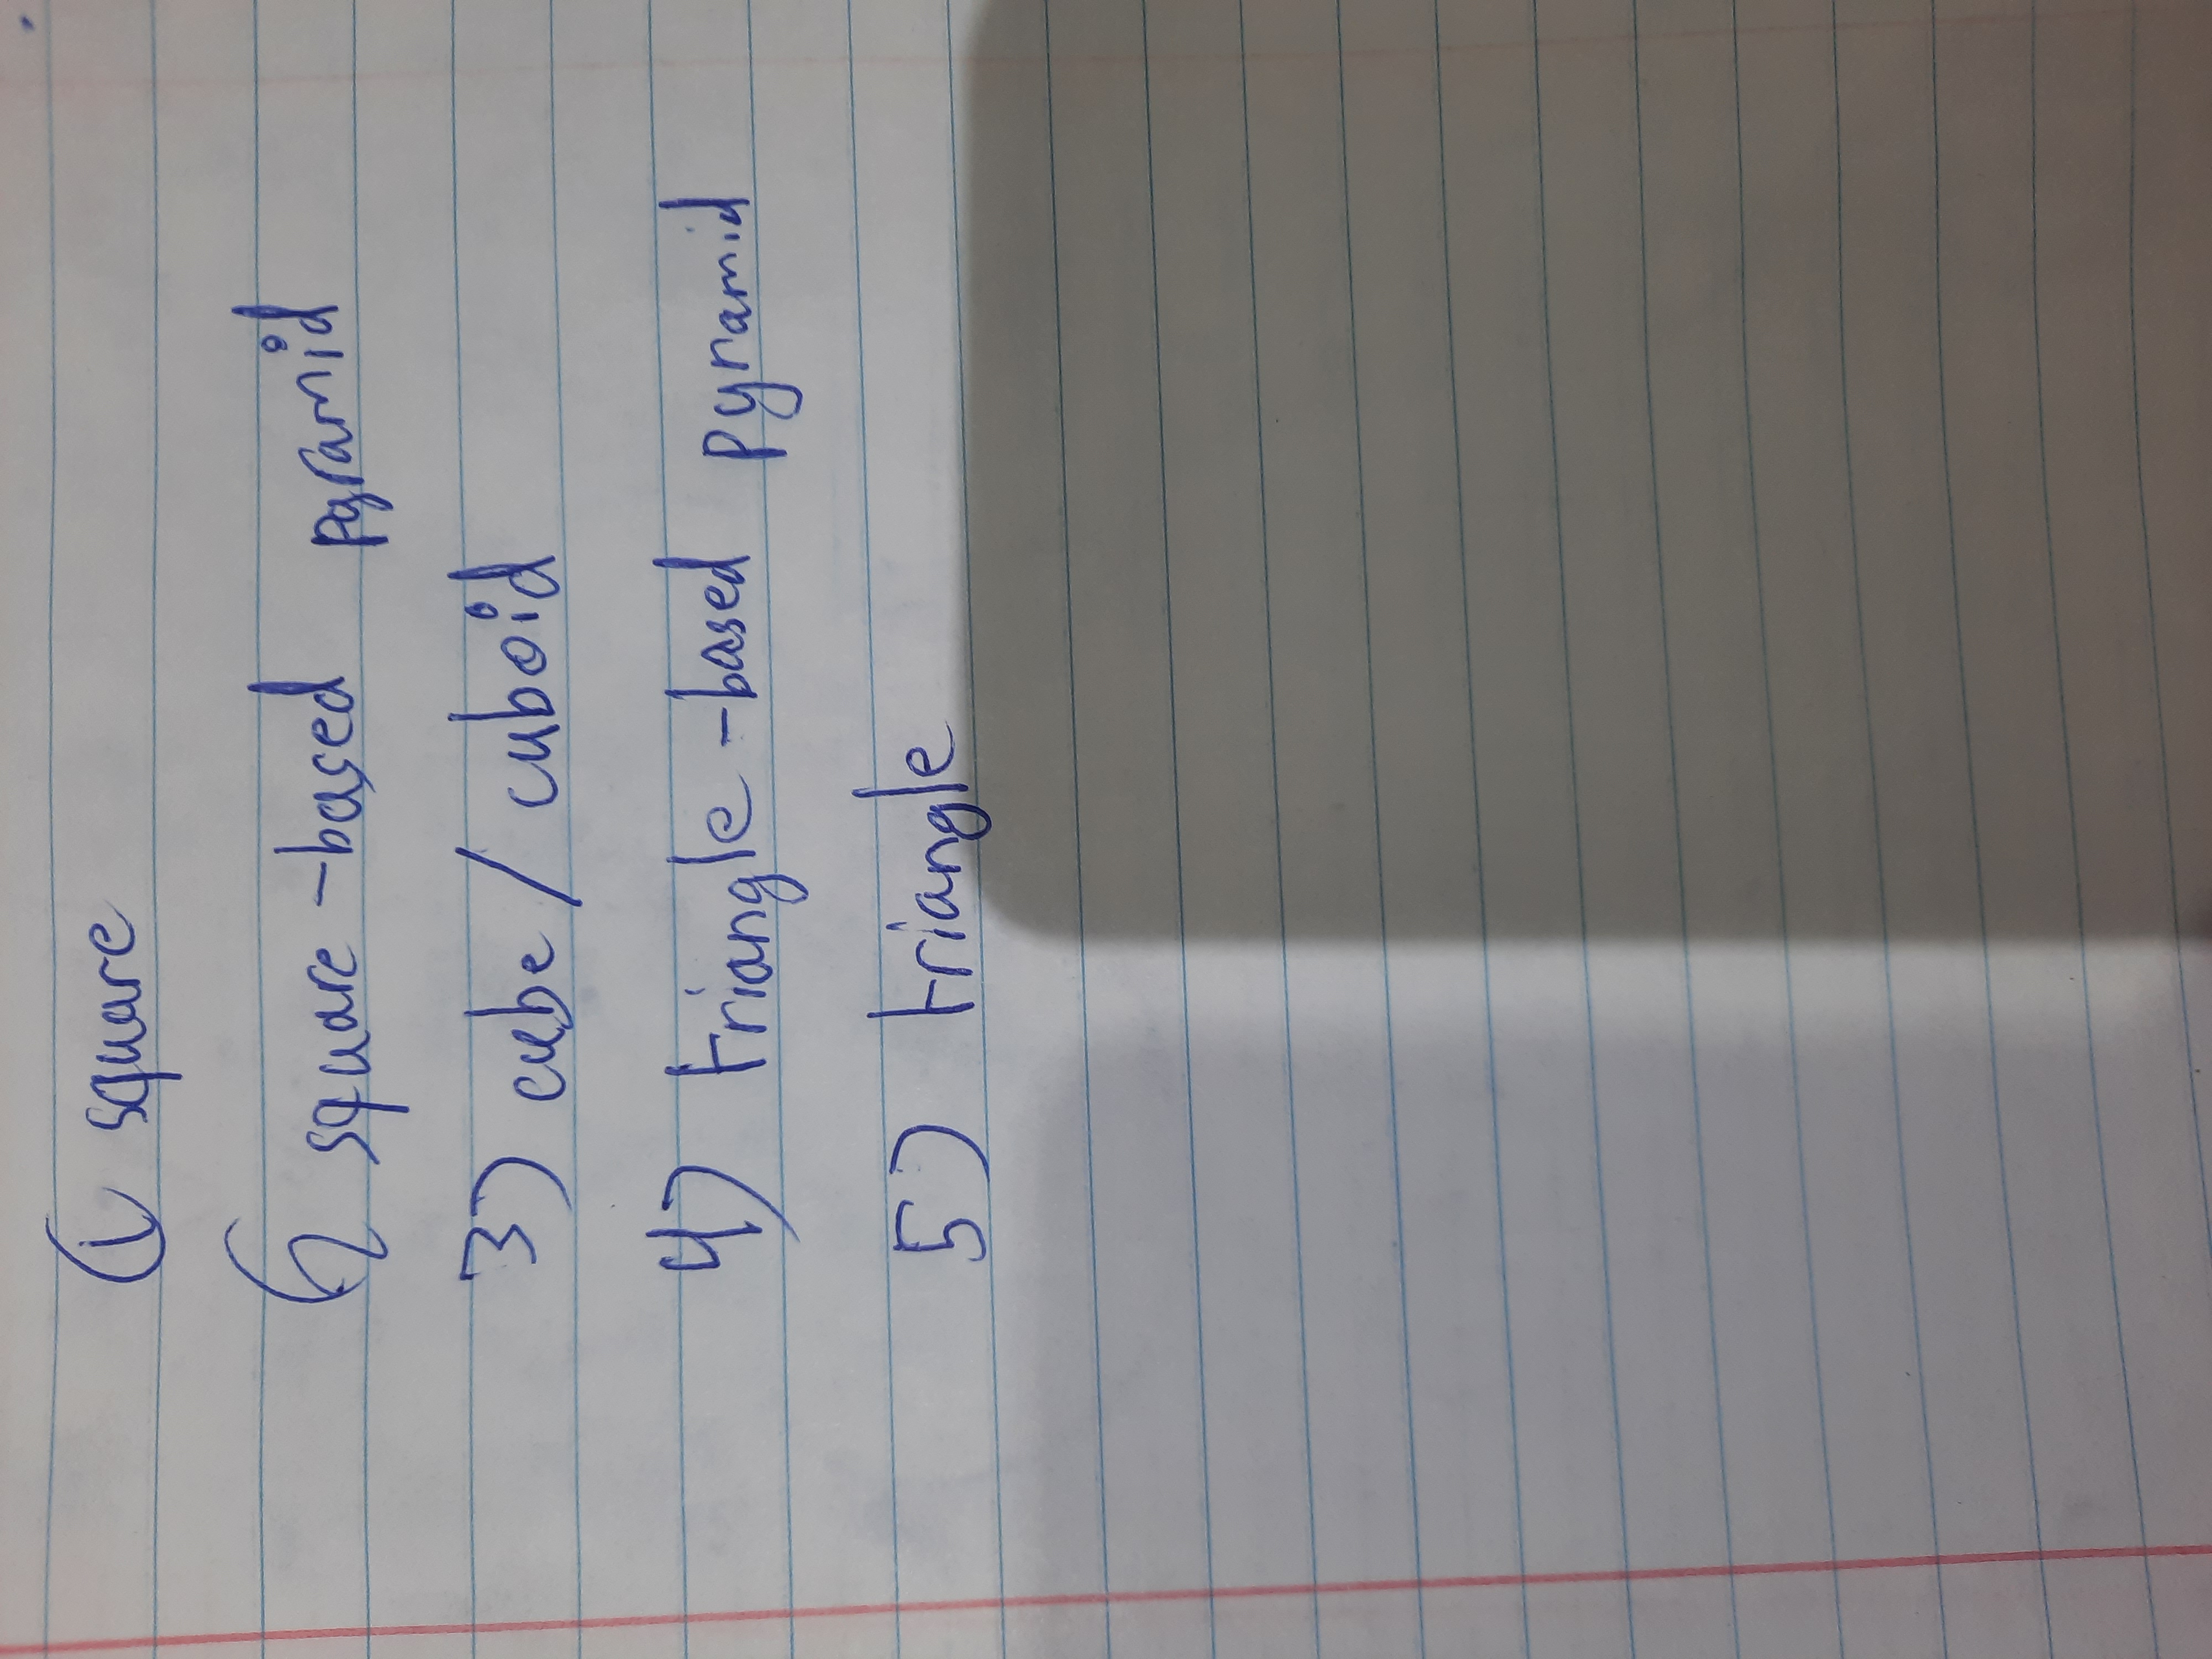 (1 square
(2 square-based pyramid
3) cube / cuboid
4) triangle-based pyramid
5) triangle